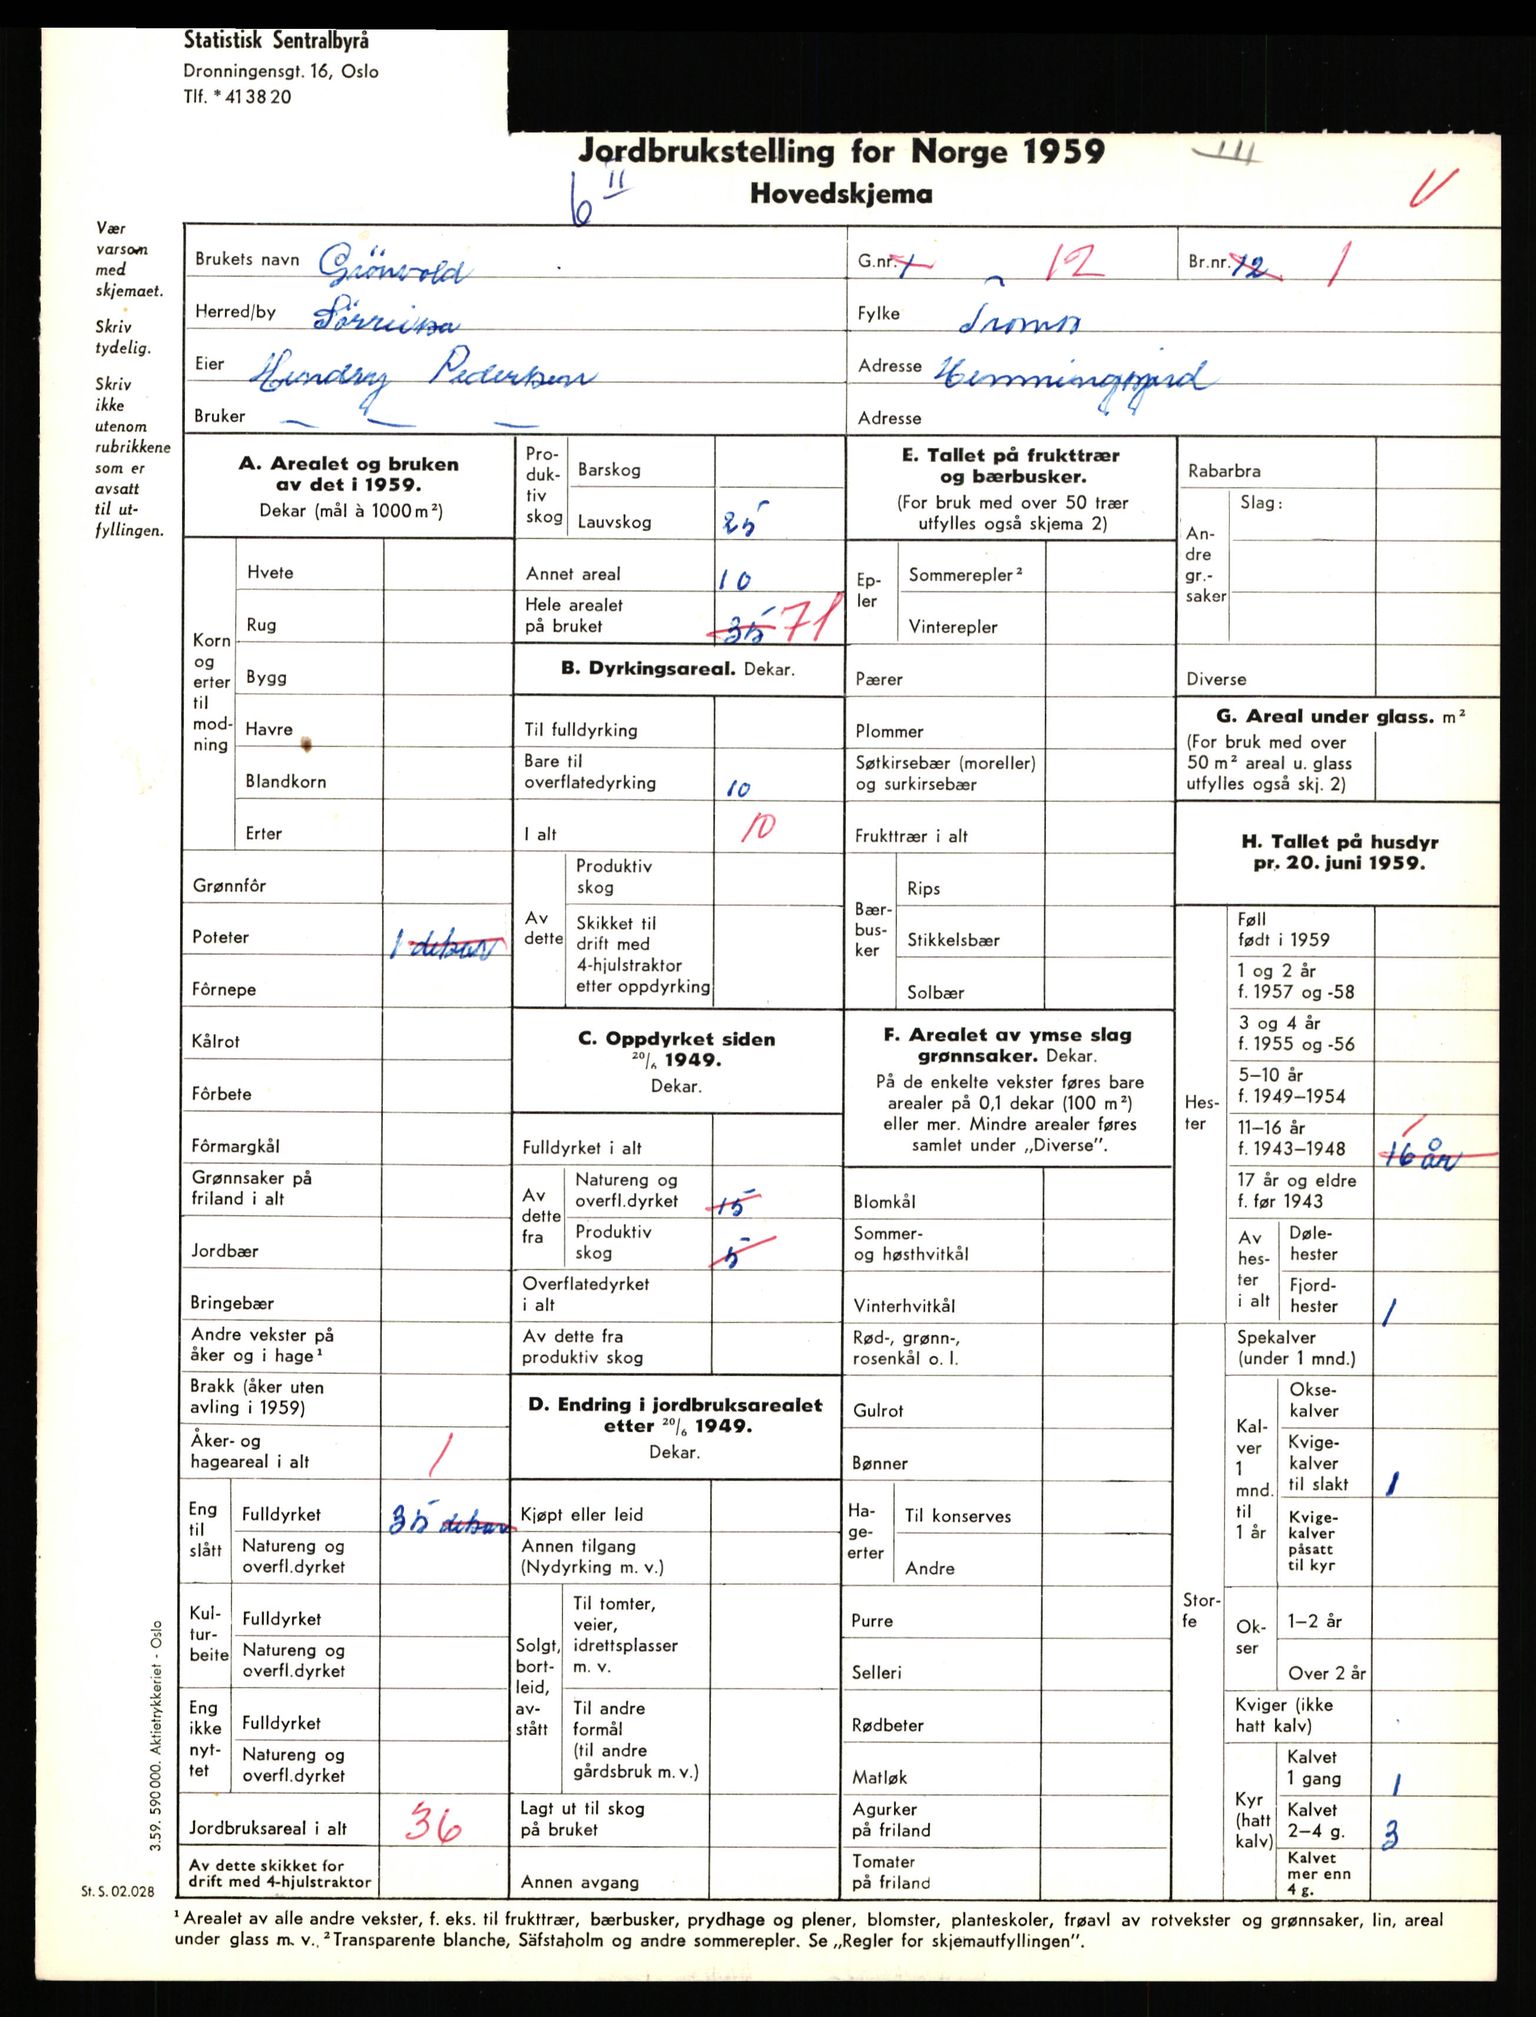 Statistisk Sentralbyrå
Dronningensgt. 16, Oslo
Tlf. * 41 38 20
Jordbrukstelling for Norge 1959
Hovedskjema
6 II
V
Vær
varsom
med
skjemaet.
Skriv
tydelig.
Skriv
ikke
utenom
rubrikkene
som er
avsatt
til ut-
fyllingen.
Brukets navn Grönvold
G.nr. 1 12
Br.nr. 12 1
Herred/by Sörreisa
Fylke Troms
Eier Hendry Pedersen
Adresse Hemmingsfjord
Bruker — — —
Adresse
A. Arealet og bruken
av det i 1959.
Dekar (mål à 1000 m²)
Korn
og
erter
til
mod-
ning
Hvete
Rug
Bygg
Havre
Blandkorn
Erter
Grønnfôr
Poteter 1 dekar
Fôrnepe
Kålrot
Fôrbete
Fôrmargkål
Grønnsaker på
friland i alt
Jordbær
Bringebær
Andre vekster på
åker og i hage¹
Brakk (åker uten
avling i 1959)
Åker- og
hageareal i alt 1
Eng
til
slått
Fulldyrket 35 dekar
Natureng og
overfl.dyrket
Kul-
tur-
beite
Fulldyrket
Natureng og
overfl.dyrket
Eng
ikke
nyt-
tet
Fulldyrket
Natureng og
overfl.dyrket
Jordbruksareal i alt 36
Av dette skikket for
drift med 4-hjulstraktor
Pro-
duk-
tiv
skog
Barskog
Lauvskog 25
Annet areal 10
Hele arealet
på bruket 35 71
B. Dyrkingsareal. Dekar.
Til fulldyrking
Bare til
overflatedyrking 10
I alt 10
Av
dette
Produktiv
skog
Skikket til
drift med
4-hjulstraktor
etter oppdyrking
C. Oppdyrket siden
20/6 1949.
Dekar.
Fulldyrket i alt
Av
dette
fra
Natureng og
overfl.dyrket 15
Produktiv
skog 5
Overflatedyrket
i alt
Av dette fra
produktiv skog
D. Endring i jordbruksarealet
etter 20/6 1949.
Dekar.
Kjøpt eller leid
Annen tilgang
(Nydyrking m. v.)
Solgt,
bort-
leid,
av-
stått
Til tomter,
veier,
idrettsplasser
m. v.
Til andre
formål
(til andre
gårdsbruk m. v.)
Lagt ut til skog
på bruket
Annen avgang
E. Tallet på frukttrær
og bærbusker.
(For bruk med over 50 trær
utfylles også skjema 2)
Ep-
ler
Sommerepler²
Vinterepler
Pærer
Plommer
Søtkirsebær (moreller)
og surkirsebær
Frukttrær i alt
Bær-
bus-
ker
Rips
Stikkelsbær
Solbær
F. Arealet av ymse slag
grønnsaker. Dekar.
På de enkelte vekster føres bare
arealer på 0,1 dekar (100 m²)
eller mer. Mindre arealer føres
samlet under „Diverse”.
Blomkål
Sommer-
og høsthvitkål
Vinterhvitkål
Rød-, grønn-,
rosenkål o. l.
Gulrot
Bønner
Ha-
ge-
erter
Til konserves
Andre
Purre
Selleri
Rødbeter
Matløk
Agurker
på friland
Tomater
på friland
Rabarbra
An-
dre
gr.-
saker
Slag:
Diverse
G. Areal under glass. m²
(For bruk med over
50 m² areal u. glass
utfylles også skj. 2)
H. Tallet på husdyr
pr. 20. juni 1959.
Hes-
ter
Føll
født i 1959
1 og 2 år
f. 1957 og -58
3 og 4 år
f. 1955 og -56
5–10 år
f. 1949–1954
11–16 år
f. 1943–1948 16 år 1
17 år og eldre
f. før 1943
Av
hes-
ter
i alt
Døle-
hester
Fjord-
hester 1
Stor-
fe
Spekalver
(under 1 mnd.)
Kal-
ver
1
mnd.
til
1 år
Okse-
kalver
Kvige-
kalver
til slakt 1
Kvige-
kalver
påsatt
til kyr
Ok-
ser
1–2 år
Over 2 år
Kviger (ikke
hatt kalv)
Kyr
(hatt
kalv)
Kalvet
1 gang 1
Kalvet
2–4 g. 3
Kalvet
mer enn
4 g.
3.59. 590 000. Aktietrykkeriet - Oslo
St. S. 02.028
¹ Arealet av alle andre vekster, f. eks. til frukttrær, bærbusker, prydhage og plener, blomster, planteskoler, frøavl av rotvekster og grønnsaker, lin, areal
under glass m. v. ² Transparente blanche, Säfstaholm og andre sommerepler. Se „Regler for skjemautfyllingen”.